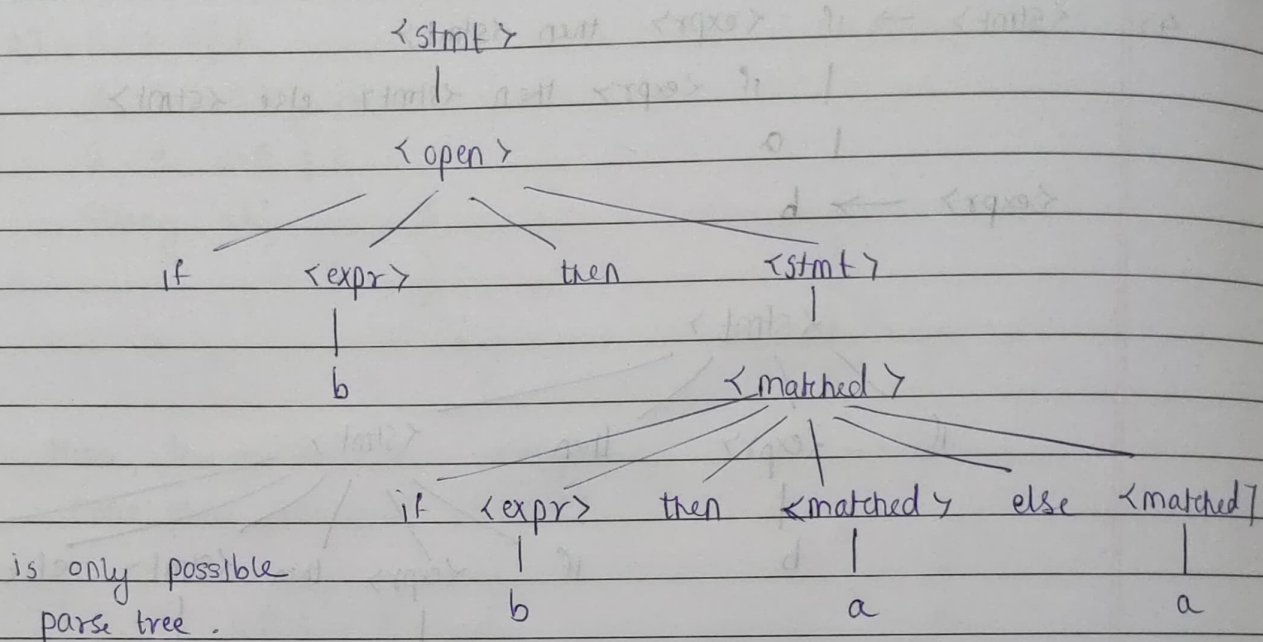 <stmt>
<open>
if <expr> then <stmt>
b
<matched>
if <expr> then <matched> else <matched]
is only possible
b a a
parse tree.